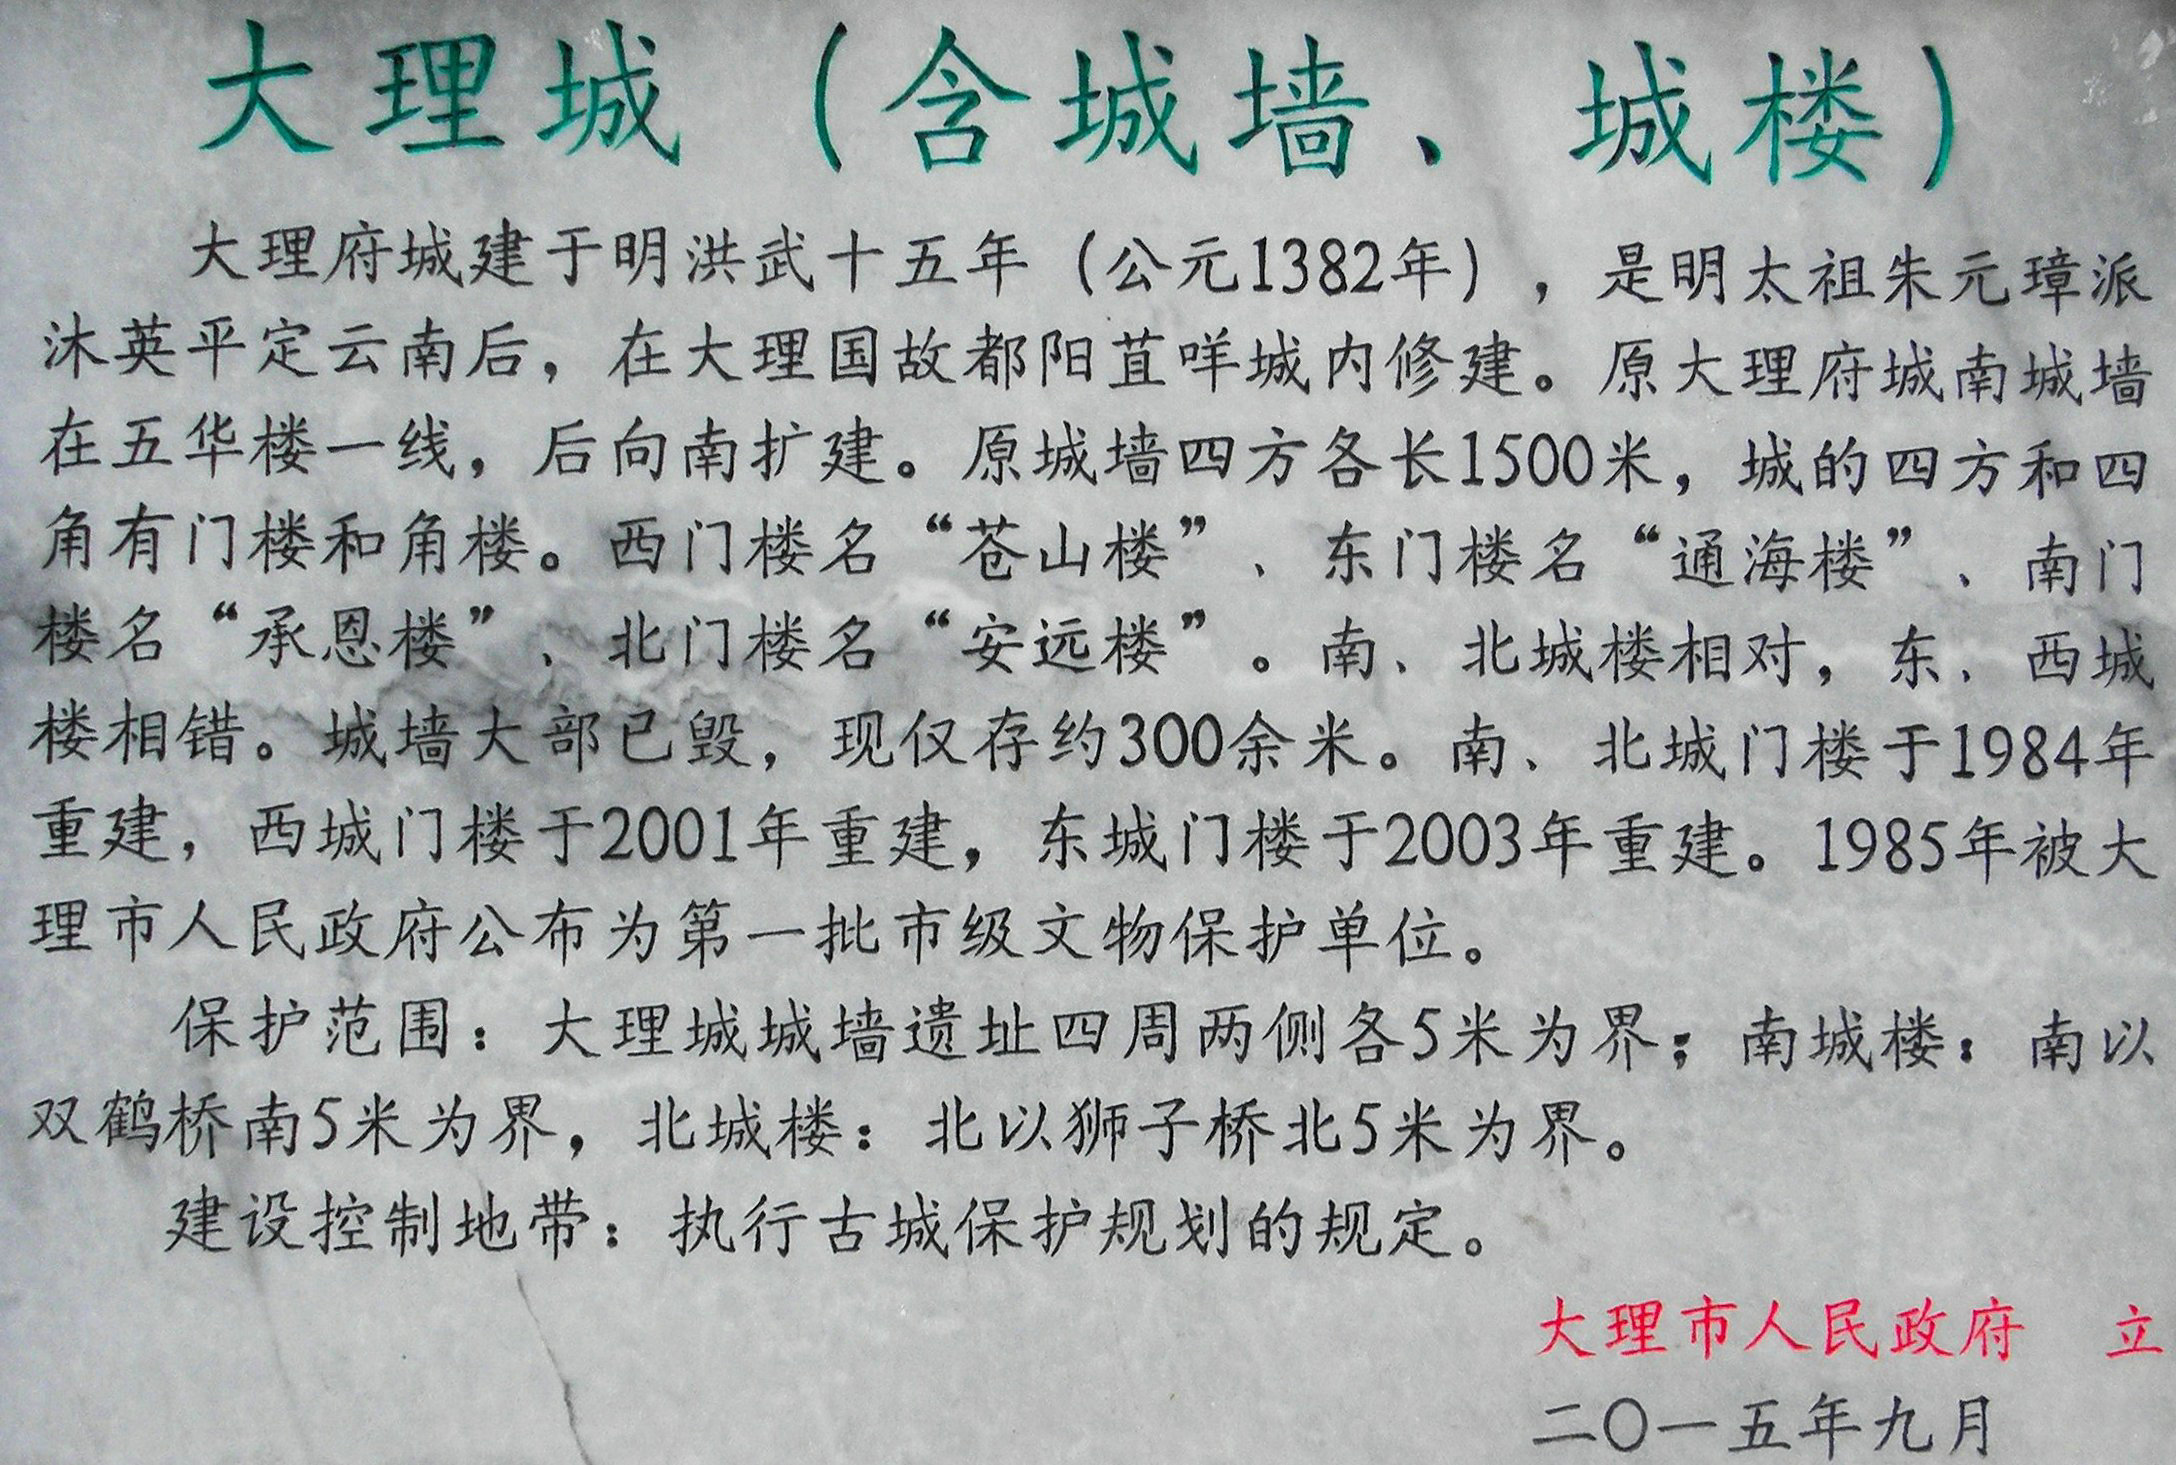 大理城（含城墙、城楼）
大理府城建于明洪武十五年（公元1382年），是明太祖朱元璋派
沐英平定云南后，在大理国故都阳苴咩城内修建。原大理府城南城墙
在五华楼一线，后向南扩建。原城墙四方各长1500米，城的四方和四
角有门楼和角楼。西门楼名“苍山楼”、东门楼名“通海楼”、南门
楼名“承恩楼”、北门楼名“安远楼”。南、北城楼相对，东、西城
楼相错。城墙大部已毁，现仅存约300余米。南、北城门楼于1984年
重建，西城门楼于2001年重建，东城门楼于2003年重建。1985年被大
理市人民政府公布为第一批市级文物保护单位。
保护范围：大理城城墙遗址四周两侧各5米为界；南城楼：南以
双鹤桥南5米为界，北城楼：北以狮子桥北5米为界。
建设控制地带：执行古城保护规划的规定。
大理市人民政府 立
二〇一五年九月